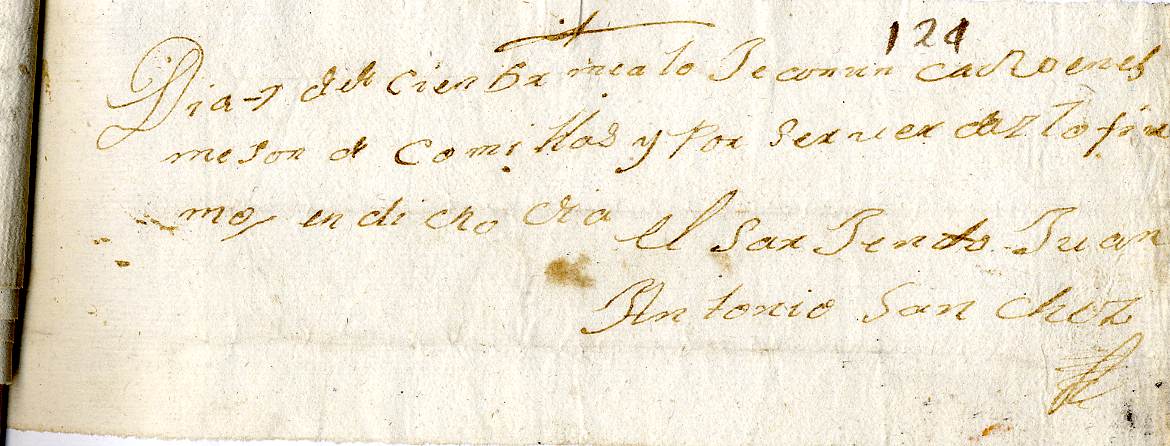 121
Dia 7 de Cienbr me alo Je con un carro en el
meson de Comillas y Por ser verdaz lo fir
mo en dicho dia
el SarJento Juan
Antonio Sanchez